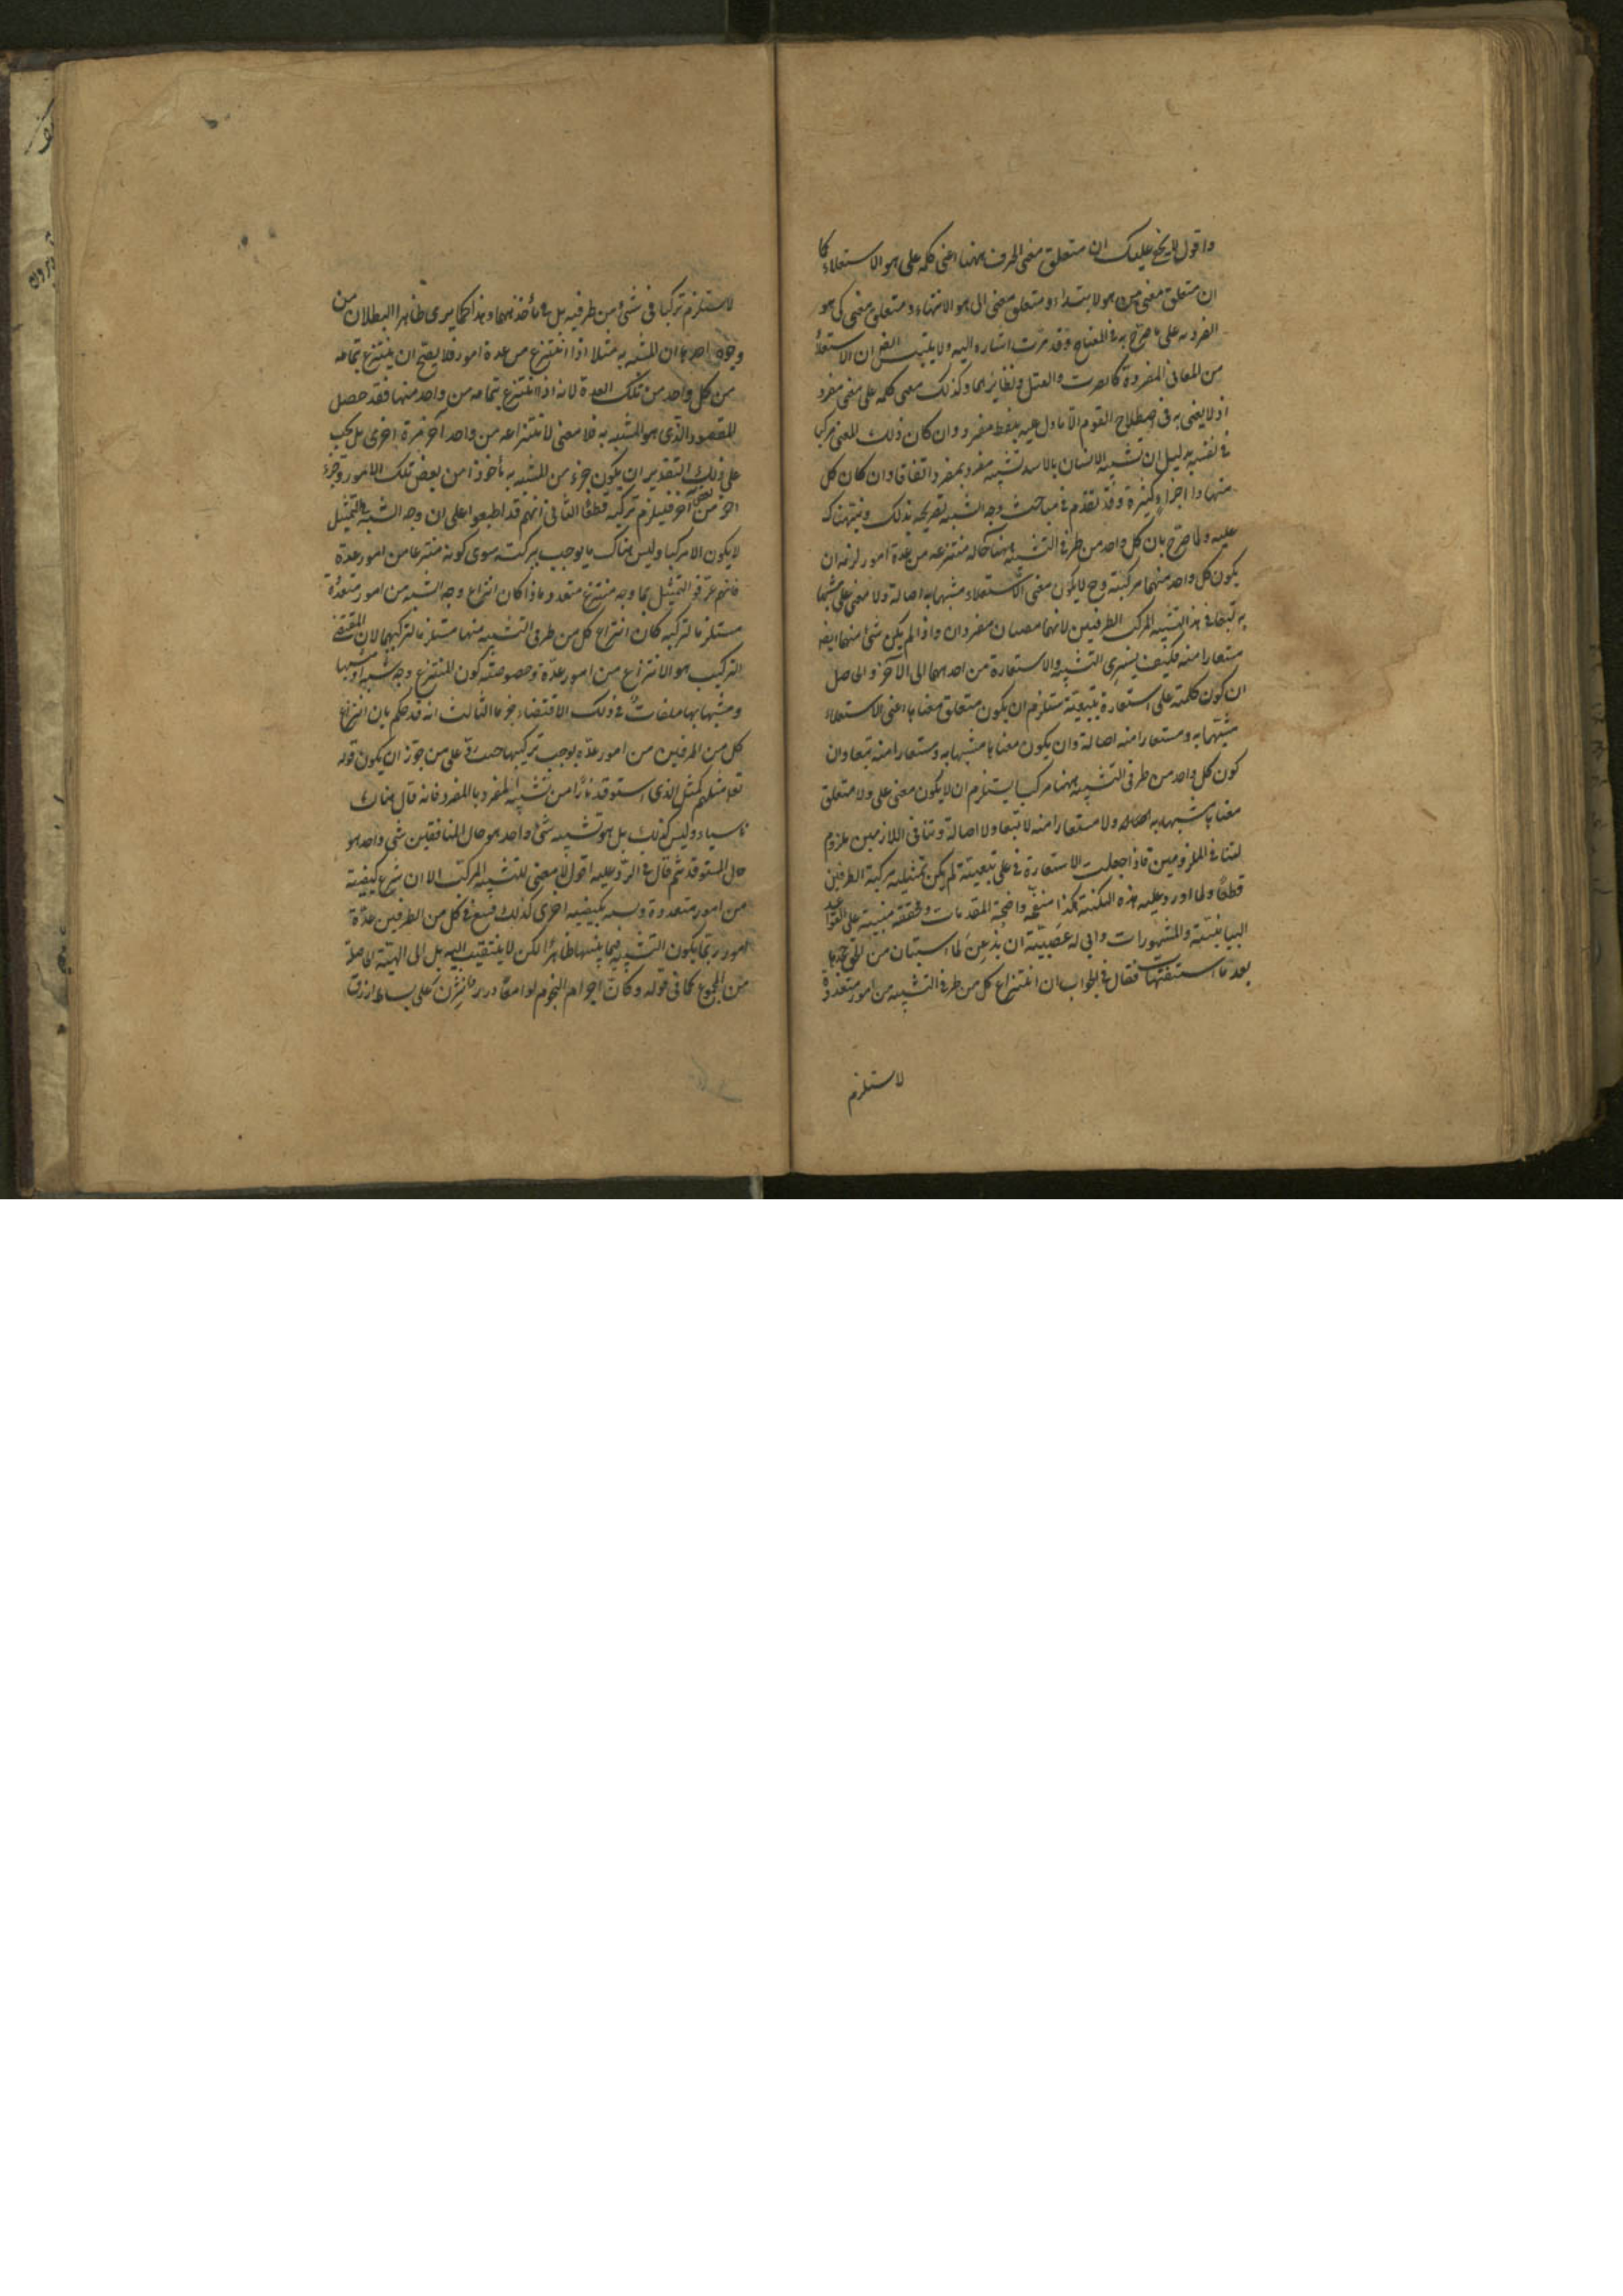 واقول لا يخفى عليك ان متعلق معنى الحرف ههنا اعنى كلمة على هو الاستعلاء كما
ان متعلق معنى من هو الابتداء ومتعلق معنى الى هو الانتهاء ومتعلق معنى كى هو
الغرضية على ما صرح به فى المفتاح وقد مرت اشارة اليه ولا يلتبس ان الاستعلاء
من المعانى المفردة كالضرب والقتل ونظائرهما وكذلك معنى كلمة على معنى مفرد
اذ لا يعنى به فى اصطلاح القوم الا ما دل عليه بلفظ مفرد وان كان ذلك المعنى مركبا
فى نفسه بدليل ان تشبيه الانسان بالاسد تشبيه مفرد بمفرد اتفاقا وان كان كل
منهما ذا اجزاء كثيرة وقد تقدم فى مباحث وجه الشبه تصريحه بذلك ونبهناك
عليه ولما صرح بان كل واحد من طرفى التشبيه ههنا حالة منتزعة من عدة امور لزمه ان
يكون كل واحد منهما مركبة وح لا يكون معنى الاستعلاء مشبها به اصالة ولا معنى على مشبها
به تبعا فى هذا التشبيه المركب الطرفين لانهما معنيان مفردان واذا لم يكن شئ منهما ايضا
مستعارا منه فكيف يسرى التشبيه والاستعارة من احدهما الى الآخر والحاصل
ان كون كلمة على استعارة تبعية تستلزم ان يكون متعلق معناها اعنى الاستعلاء
مشبها به ومستعارا منه اصالة وان يكون معناها مشبها به ومستعارا منه تبعا وان
كون كل واحد من طرفى التشبيه ههنا مركبا يستلزم ان لا يكون معنى على ولا متعلق
معناها مشبها به ولا مستعارا منه لا تبعا ولا اصالة وتنافى اللازمين ملزوم
لتنافى الملزومين فاذا جعلت الاستعارة فى على تبعية لم يكن تمثيلية مركبة الطرفين
قطعا ولما اورد عليه هذه النكتة هكذا منقحة واضحة المقدمات ومحققة مبنية على القواعد
البيانية والمشهورات وابى له عصبيته ان يذعن لما استبان من الحق
بعد ما استيقنتها فقال فى الجواب ان انتزاع كل من طرفى التشبيه من امور متعددة
لا يستلزم
لا يستلزم تركبا فى شئ من طرفيه بل فى مأخذهما وهذا كما يرى ظاهر البطلان من
وجوه احدها ان المشبه به مثلا اذا انتزع من عدة امور فلا يصح ان ينتزع بتمامه
من كل واحد من تلك العدة لانه اذا انتزع بتمامه من واحد منها فقد حصل
المقصود الذى هو المشبه به فلا معنى لانتزاعه من واحد آخر مرة اخرى بل يجب
على ذلك التقدير ان يكون جزء من المشبه به مأخوذا من بعض تلك الامور وجزء
آخر من بعض آخر فيلزم تركبه قطعا الثانى انهم قد اطبقوا على ان وجه الشبه فى التمثيل
لا يكون الا مركبا وليس هناك ما يوجب تركبه سوى كونه منتزعا من امور عدة
فانهم عرفوا التمثيل بما وجه منتزع من متعدد فاذا كان انتزاع وجه الشبه من امور متعددة
مستلزما لتركبه كان انتزاع كل من طرفى التشبيه منها مستلزما لتركبهما لان المقتضى
للتركيب هو الانتزاع من امور عدة وخصوصية كون المنتزع وجه شبه او مشبها
ومشبها بها ملغاة فى ذلك الاقتضاء جزما الثالث انه قد حكم بان انتزاع
كل من الطرفين من امور عدة يوجب تركيبهما حيث رد على من جوز ان يكون قوله
تعالى مثلهم كمثل الذى استوقد نارا من تشبيه المفرد بالمفرد فانه قال هناك
وليس كذلك بل هو تشبيه شئ واحد هو حال المنافقين شئ واحد هو
حال المستوقد ثم قال فى الرد عليه اقول لا معنى للتشبيه المركب الا ان ينتزع كيفية
من امور متعددة وتشبه بكيفية اخرى كذلك فيقع فى كل من الطرفين عدة
امور ربما يكون التشبيه فيما بينها ظاهرا لكن لا يلتفت اليه بل الى الهيئة الحاصلة
من المجموع كما فى قوله وكأن اجرام النجوم لوامعا درر نثرن على بساط ازرق